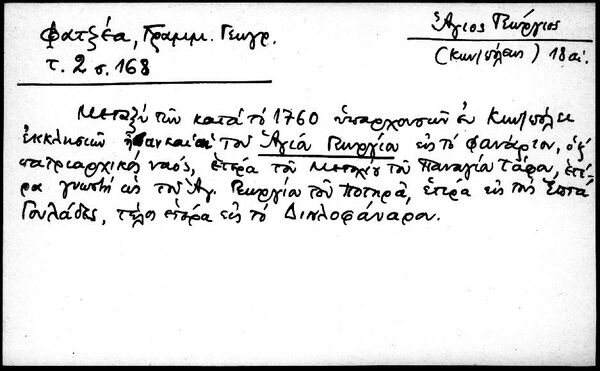 Φατζέα, Γραμμ. Γεωγρ.
τ. 2 σ. 168
Ἅγιος Γεώργιος
(Κων/πόλεως) 18 αἰ.
Μεταξὺ τῶν κατὰ τὸ 1760 ὑπαρχουσῶν ἐν Κων/πόλει
ἐκκλησιῶν ἦσαν καὶ αἱ τοῦ Ἁγίου Γεωργίου εἰς τὸ Φανάριον, ὁ
πατριαρχικὸς ναός, ἑτέρα τοῦ Μετοχίου τοῦ Παναγίου Τάφου, ἑτέ-
ρα γνωστὴ ὡς τοῦ Ἁγ. Γεωργίου τοῦ Ποτηρᾶ, ἑτέρα εἰς τοὺς Ἑπτὰ
Γουλάδες, τέλος ἑτέρα εἰς τὸ Διπλοφάναρον.